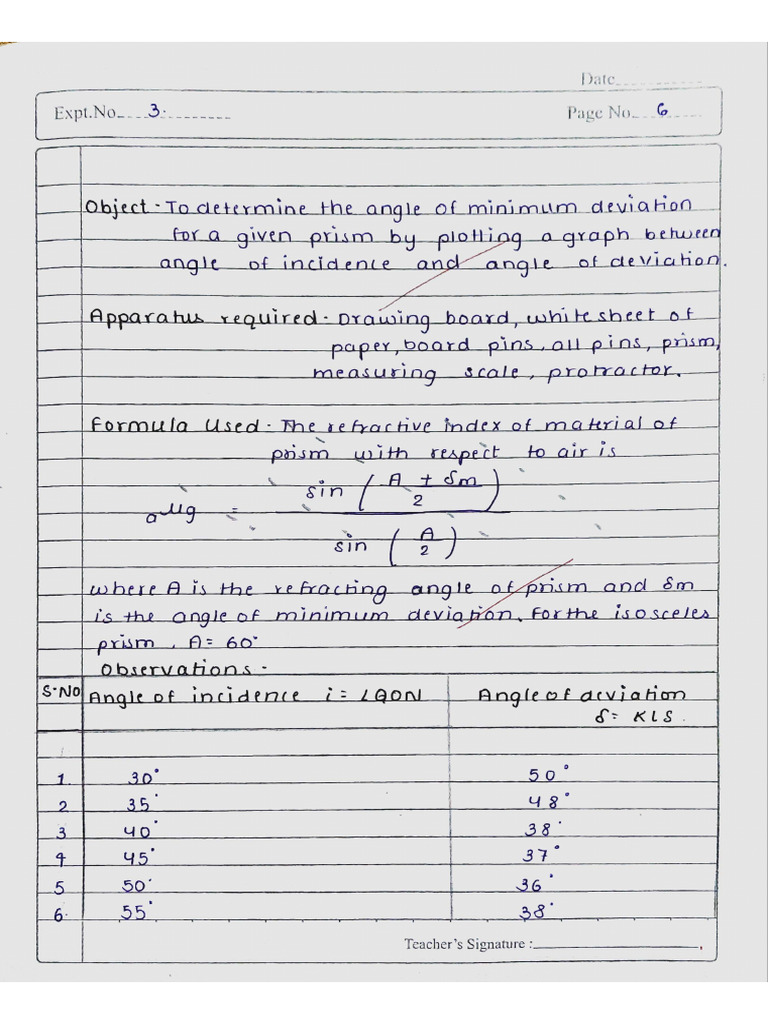 Date
Expt.No 3. Page No. 6
Object - To determine the angle of minimum deviation
for a given prism by plotting a graph between
angle of incidence and angle of deviation.
Apparatus required - Drawing board, white sheet of
paper, board pins, all pins, prism,
measuring scale, protractor.
Formula Used - The refractive index of material of
prism with respect to air is
aμg = sin (A + δm / 2) / sin (A / 2)
where A is the refracting angle of prism and δm
is the angle of minimum deviation. For the isosceles
prism, A = 60°
Observations -
S.No Angle of incidence i = ∠QON Angle of deviation
δ = KLS.
1. 30° 50°
2 35° 48°
3 40° 38°
4 45° 37°
5 50° 36°
6. 55° 38°
Teacher's Signature :